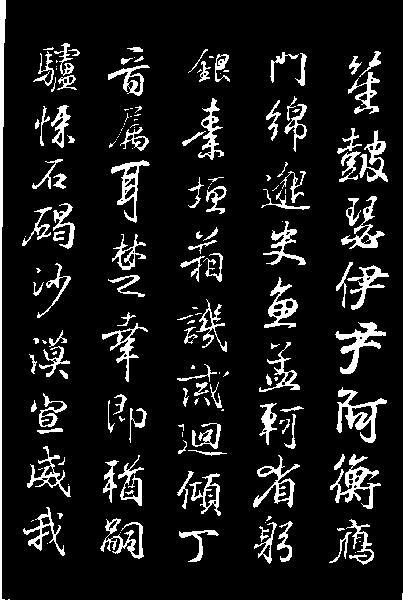 笙鼓瑟伊尹阿衡鴈
門綿邈史魚孟軻省躬
銀素垣箱譏誡迴傾丁
音属耳楚幸即猶嗣
驢悚石碣沙漠宣威我